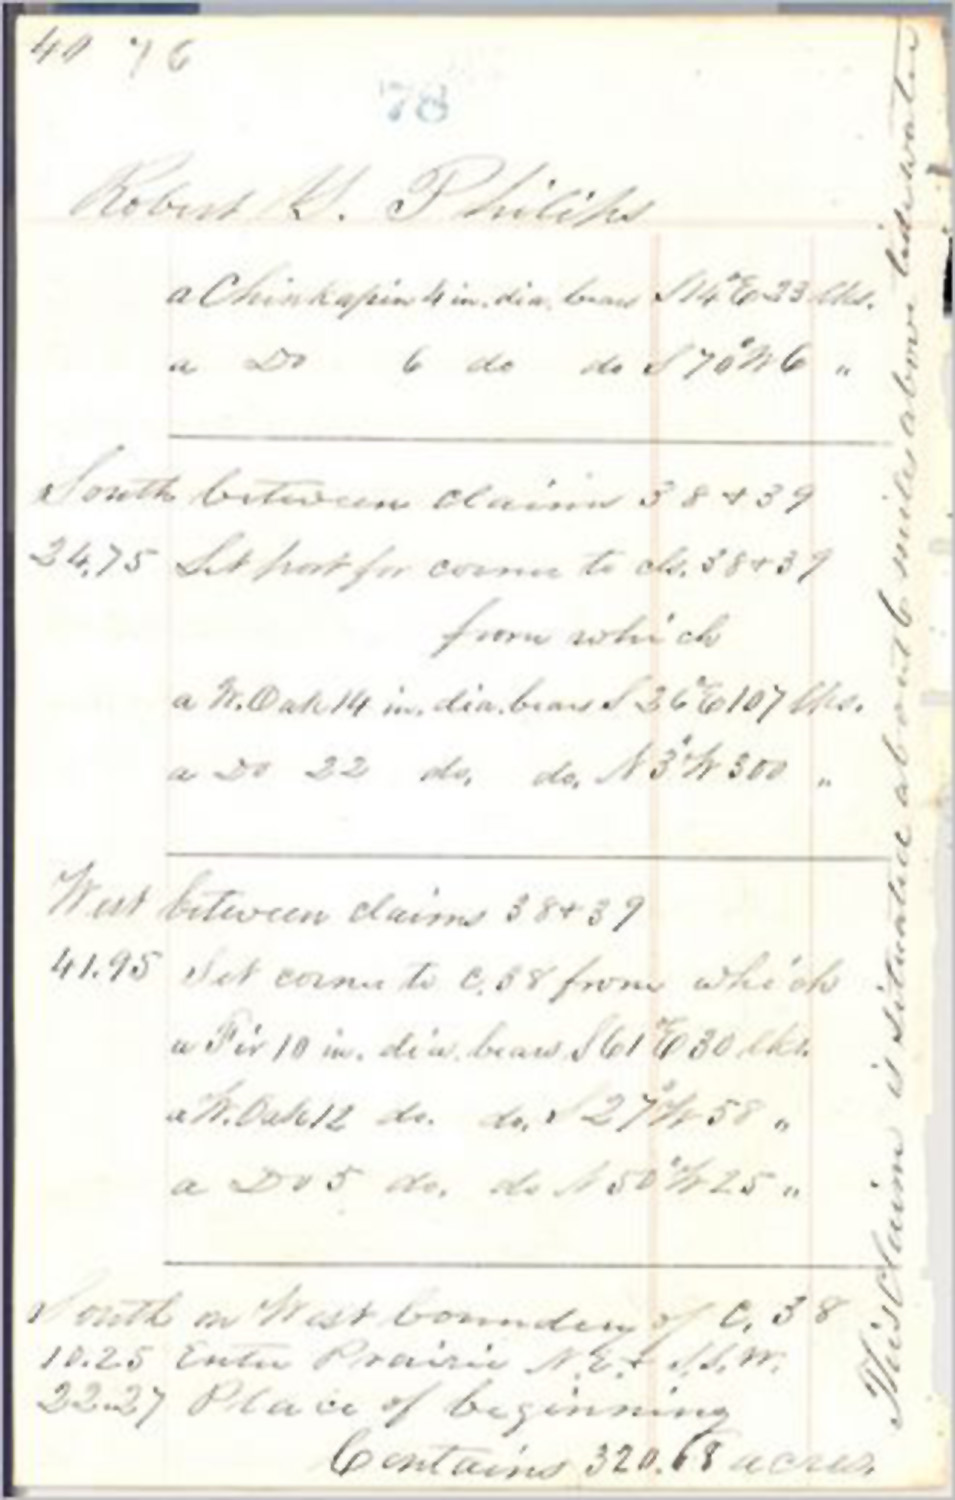 40 76
78
Robert H. Philips
a Chinkapin 4 in. dia. bears S 14° E 23 lks.
a Do 6 do do S 70° W 6 "
South between claims 38 & 39
24.75 Set post for corner to cls. 38 & 39
from which
a W. Oak 14 in. dia. bears S 26° E 107 lks.
a Do 22 do. do. N 3° W 300 "
West between claims 38 & 39
41.95 Set corner to C. 38 from which
a Fir 10 in. dia. bears S 61° E 30 lks.
a W. Oak 12 do. do. S 27° W 58 "
a Do 5 do. do N 50° W 25 "
South on West boundery of C. 38
10.25 Enter Prairie N.E. & S.S.W.
22.27 Place of beginning
Contains 320.68 acres.
This Claim is situated about 6 miles above tidewater